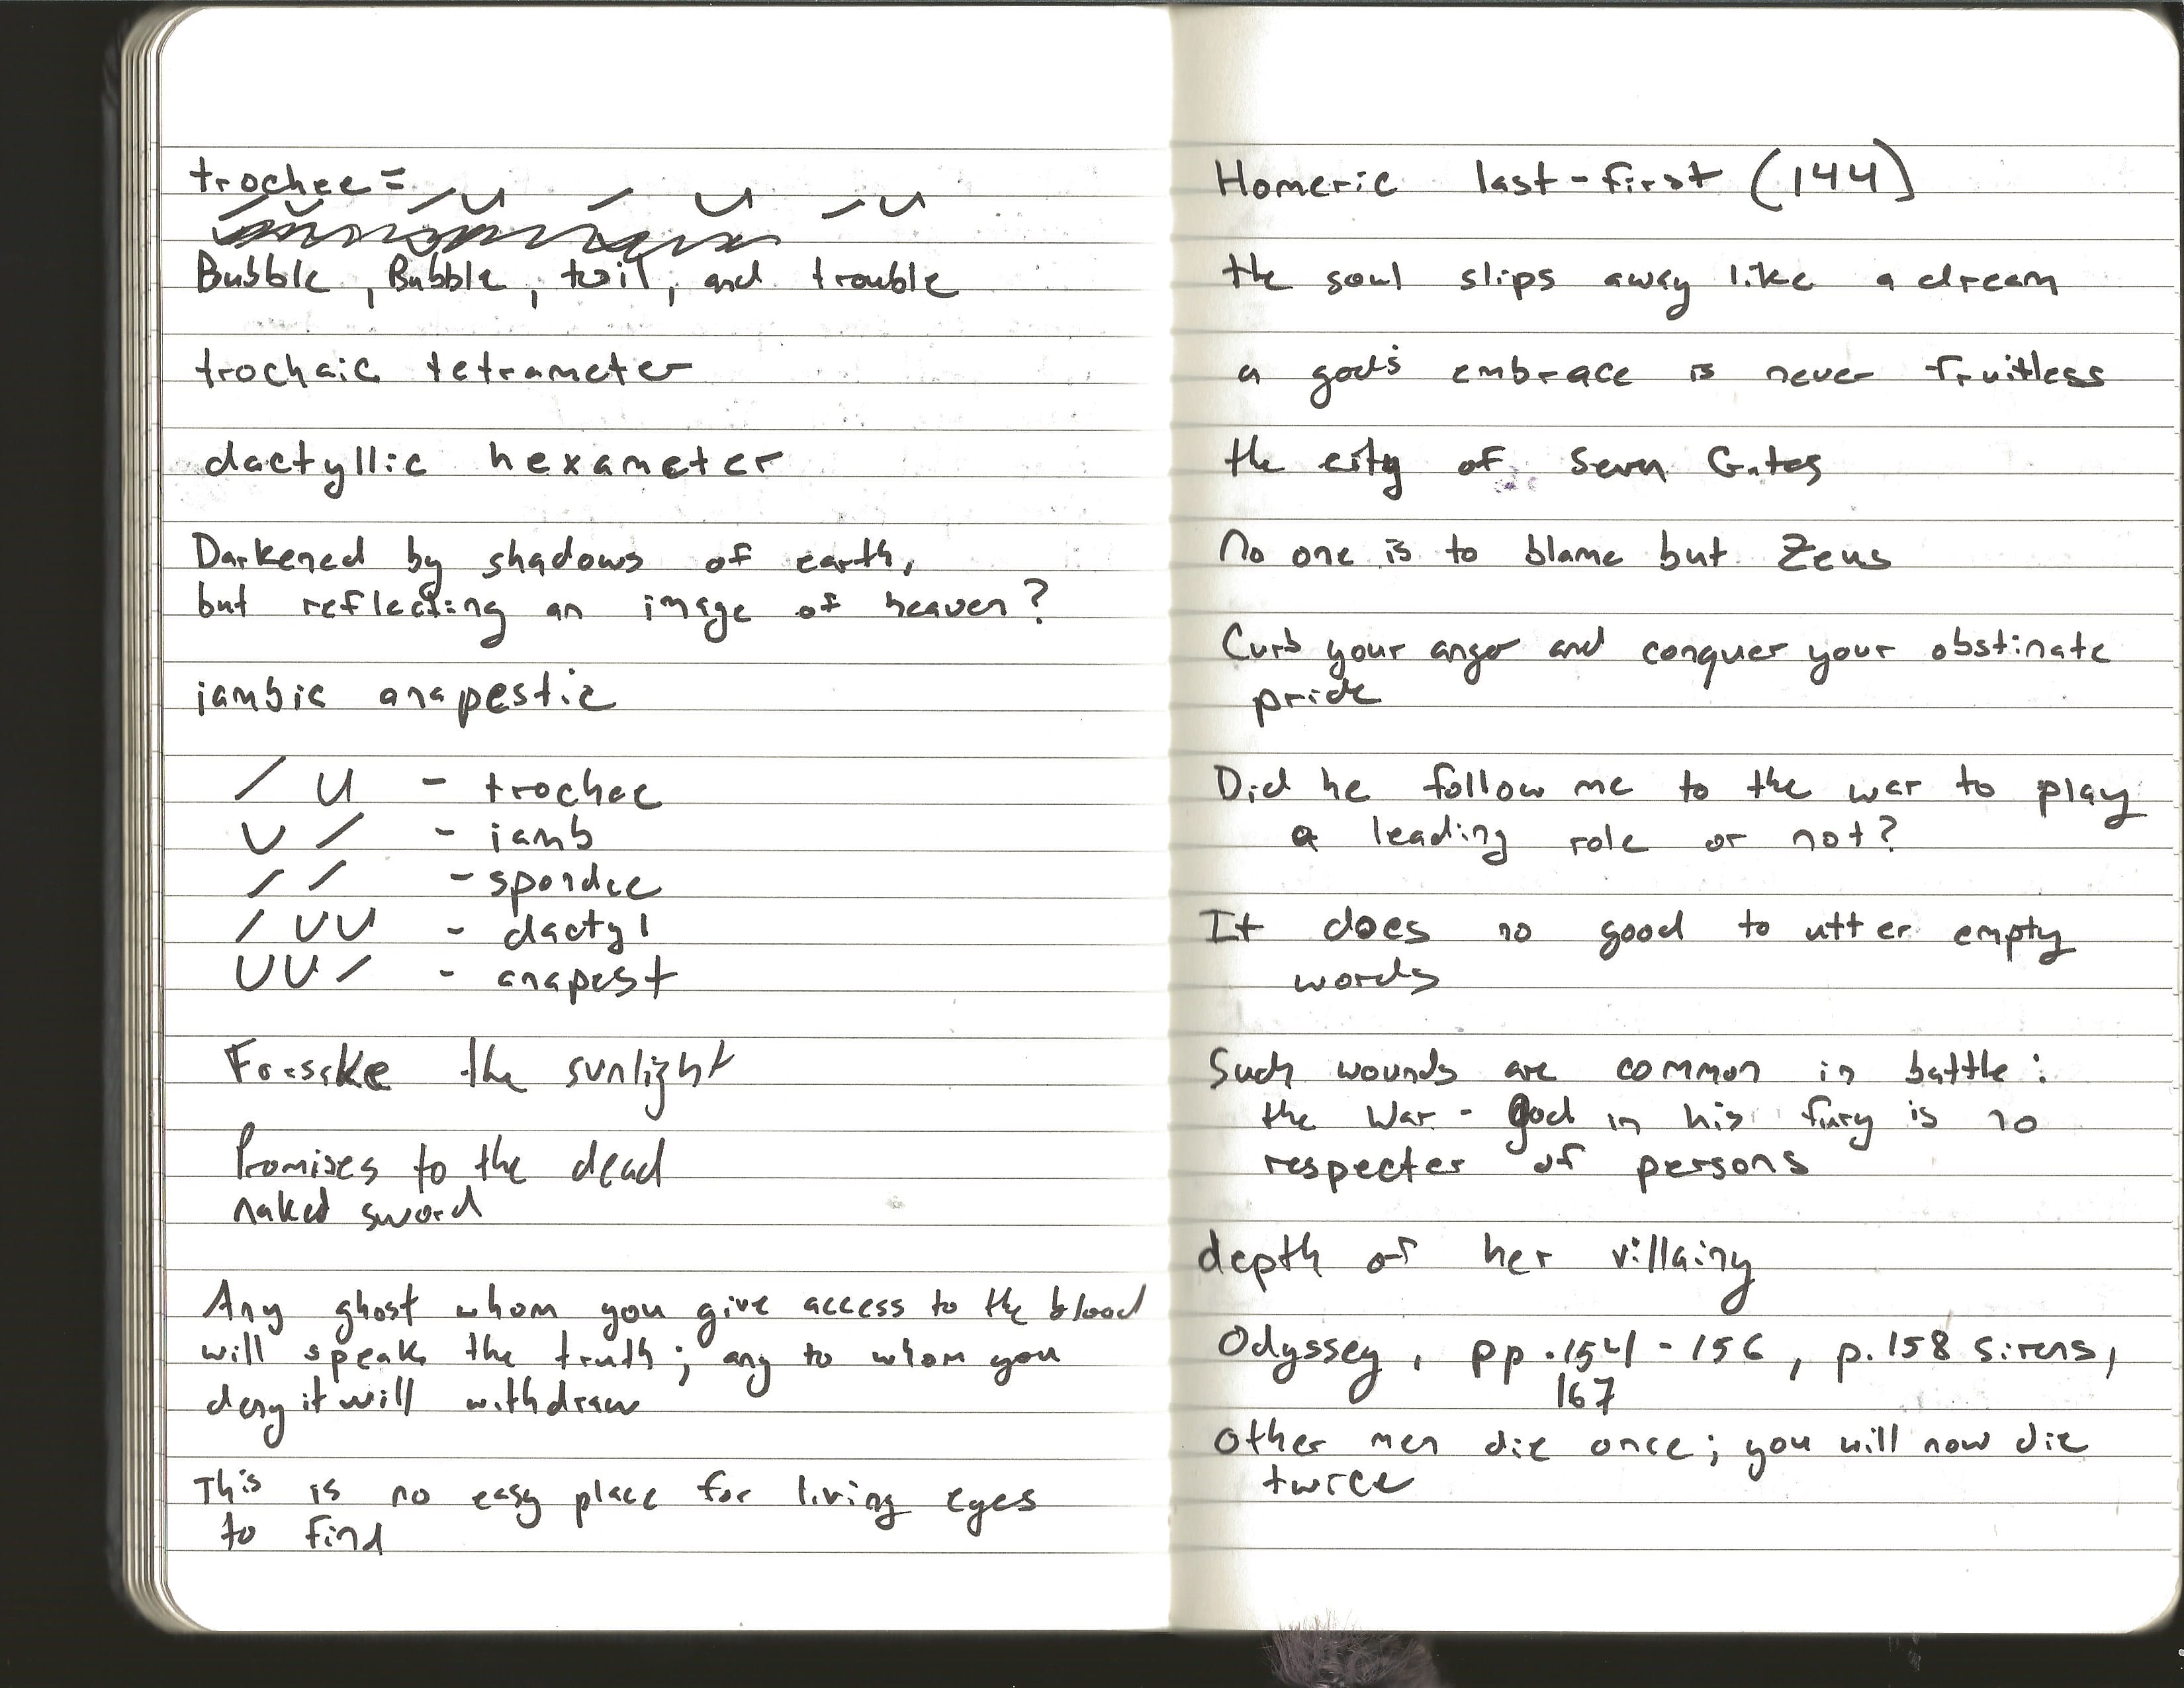 trochee =
/ U / U / U
Bubble, Bubble, toil, and trouble
trochaic tetrameter
dactyllic hexameter
Darkened by shadows of earth,
but reflecting an image of heaven?
iambic anapestic
/ U - trochee
U / - iamb
/ / - spondee
/ U U - dactyl
U U / - anapest
Forsake the sunlight
Promises to the dead
naked sword
Any ghost whom you give access to the blood
will speak the truth; any to whom you
deny it will withdraw
This is no easy place for living eyes
to find
Homeric last-first (144)
the soul slips away like a dream
a god's embrace is never fruitless
the city of Seven Gates
No one is to blame but Zeus
Curb your anger and conquer your obstinate
pride
Did he follow me to the war to play
a leading role or not?
It does no good to utter empty
words
Such wounds are common in battle:
the War-god in his fury is no
respecter of persons
depth of her villainy
Odyssey, pp. 154-156, p. 158 sirens,
167
Other men die once; you will now die
twice